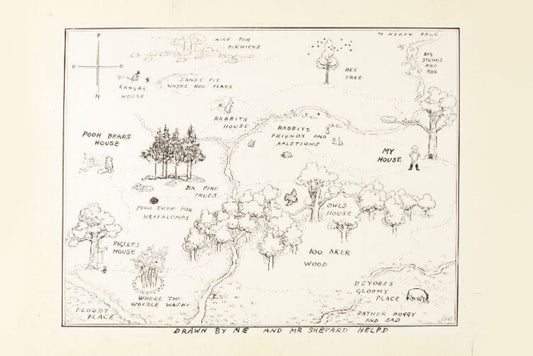 TO NORTH POLE
NICE FOR
PICKNICKS
BEE
TREE
BIG
STONES
AND
ROX
P
O
O
H
SANDY PIT
WHERE ROO PLAYS
KANGAS
HOUSE
RABBITS
HOUSE
RABBITS
FRIENDS AND
RALETIONS
POOH BEARS
HOUSE
MY
HOUSE
SIX PINE
TREES
POOH TRAP FOR
HEFFALUMPS
OWLS
HOUSE
PIGLETS
HOUSE
100 AKER
WOOD
WHERE THE
WOOZLE WASNT
EEYORES
GLOOMY
PLACE
FLOODY
PLACE
RATHER BOGGY
AND SAD
DRAWN BY ME AND MR SHEPARD HELPD